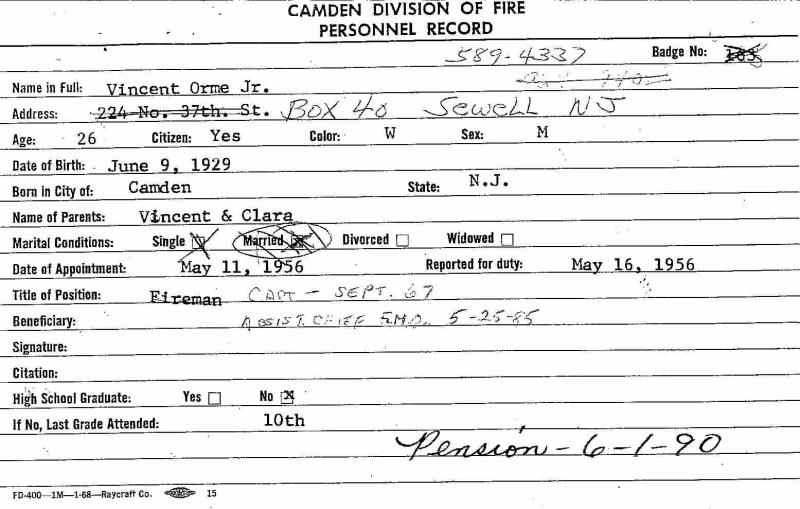 CAMDEN DIVISION OF FIRE
PERSONNEL RECORD
589-4337 Badge No: 183
Name in Full: Vincent Orme Jr.
Address: 224 No. 37th. St. BOX 40 SEWELL NJ
Age: 26 Citizen: Yes Color: W Sex: M
Date of Birth: June 9, 1929
Born in City of: Camden State: N.J.
Name of Parents: Vincent & Clara
Marital Conditions: Single Married Divorced Widowed
Date of Appointment: May 11, 1956 Reported for duty: May 16, 1956
Title of Position: Fireman CAPT - SEPT. 67
Beneficiary: ASSIST. CHIEF 5-25-85
Signature:
Citation:
High School Graduate: Yes No X
If No, Last Grade Attended: 10th
Pension - 6-1-90
FD-400—1M—1-68—Raycraft Co. 15